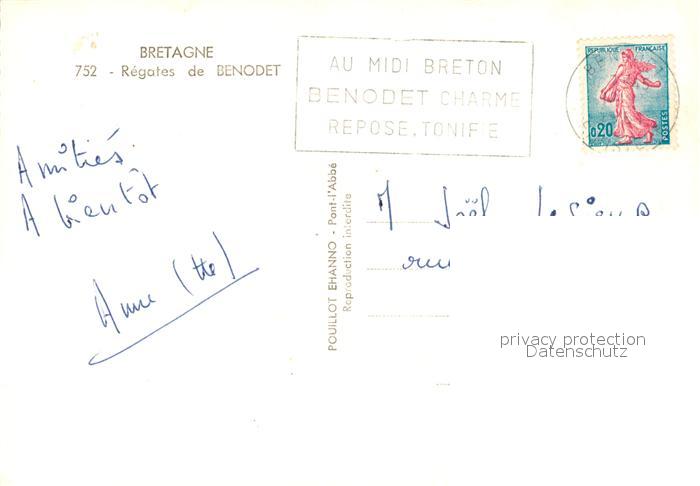 BRETAGNE
752 - Régates de BENODET
AU MIDI BRETON
BENODET CHARME
REPOSE, TONIFIE
REPUBLIQUE FRANÇAISE
0,20
POSTES
Amitiés.
A bientôt
Anne
POUILLOT EHANNO - Pont-l'Abbé
Reproduction interdite
M Joël
rue
privacy protection
Datenschutz